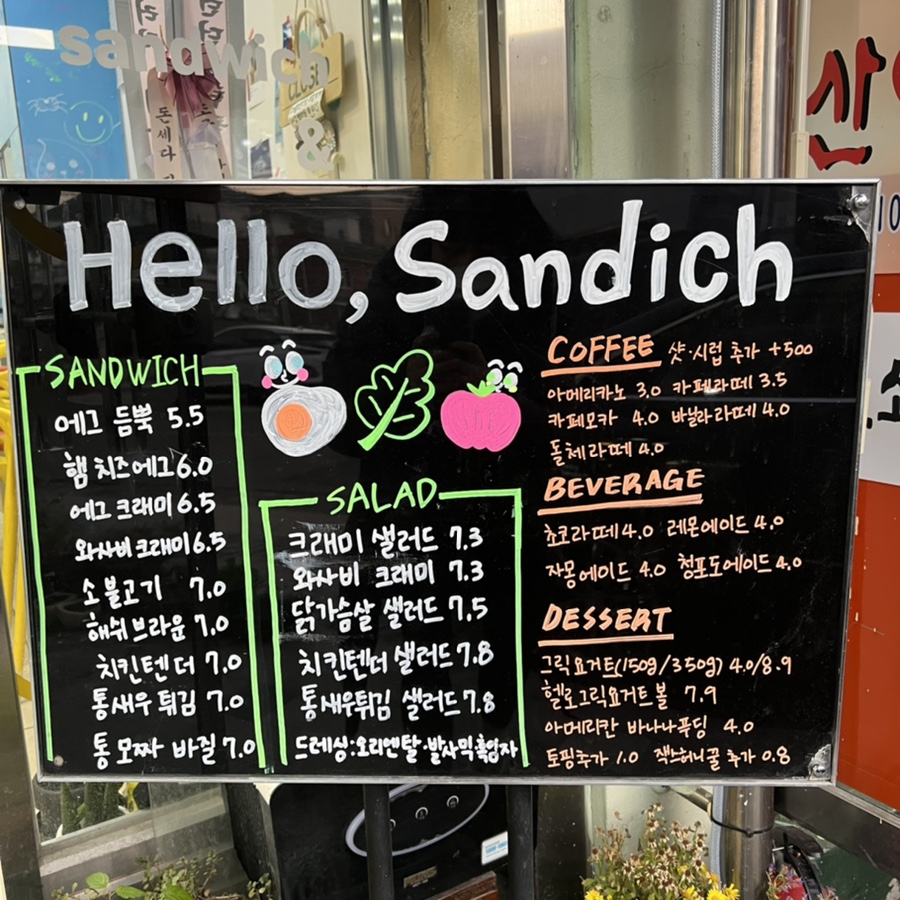 sandwich
&
CLOSE
돈세다
산
10
Hello, Sandich
SANDWICH
에그 듬뿍 5.5
햄 치즈에그 6.0
에그 크래미 6.5
와사비 크래미 6.5
소불고기 7.0
해쉬브라운 7.0
치킨텐더 7.0
통새우튀김 7.0
통모짜 바질 7.0
SALAD
크래미 샐러드 7.3
와사비 크래미 7.3
닭가슴살 샐러드 7.5
치킨텐더 샐러드 7.8
통새우튀김 샐러드 7.8
드레싱:오리엔탈·발사믹·흑임자
COFFEE 샷·시럽 추가 +500
아메리카노 3.0 카페라떼 3.5
카페모카 4.0 바닐라라떼 4.0
돌체라떼 4.0
BEVERAGE
쵸코라떼 4.0 레몬에이드 4.0
자몽에이드 4.0 청포도에이드 4.0
DESSERT
그릭요거트(150g/350g) 4.0/8.9
헬로그릭요거트볼 7.9
아메리칸 바나나푸딩 4.0
토핑추가 1.0 잭슨허니꿀 추가 0.8